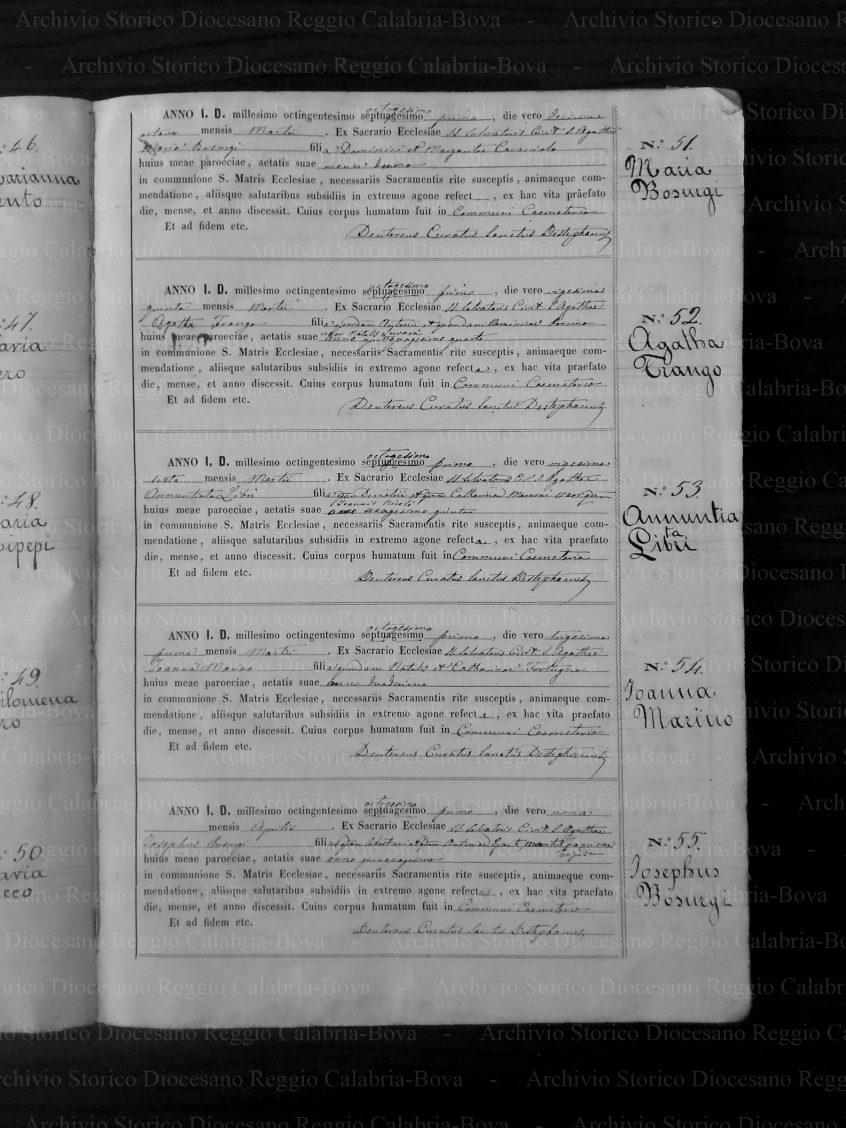 Archivio Storico Diocesano Reggio Calabria-Bova
ANNO I. D. millesimo octingentesimo septuagesimo octogesimo primo, die vero decima
octava mensis Martii. Ex Sacrario Ecclesiae SS Salvatoris Civit S. Agathae
Maria Bosurgi filia Dominici et Margarita
huius meae paroeciae, aetatis suae mense
in communione S. Matris Ecclesiae, necessariis Sacramentis rite susceptis, animaeque com-
mendatione, aliisque salutaribus subsidiis in extremo agone refect , ex hac vita praefato
die, mense, et anno discessit. Cuius corpus humatum fuit in Communi Coemeterio
Et ad fidem etc.
Deutereus Curatus Sanctus Destephanus
N.° 51.
Maria
Bosurgi
ANNO I. D. millesimo octingentesimo septuagesimo octogesimo primo, die vero vigesima
quinta mensis Martii. Ex Sacrario Ecclesiae SS Salvatoris Civit S. Agathae
Agatha Trango filia quondam Antonii et quondam
huius meae paroeciae, aetatis suae uxor Natalis
anno quinquagesimo quarto
in communione S. Matris Ecclesiae, necessariis Sacramentis rite susceptis, animaeque com-
mendatione, aliisque salutaribus subsidiis in extremo agone refecta, ex hac vita praefato
die, mense, et anno discessit. Cuius corpus humatum fuit in Communi Coemeterio
Et ad fidem etc.
Deutereus Curatus Sanctus Destephanus
N.° 52.
Agatha
Trango
ANNO I. D. millesimo octingentesimo septuagesimo octogesimo primo, die vero vigesima
sexta mensis Martii. Ex Sacrario Ecclesiae SS Salvatoris C. S. Agathae
Annuntiata Libri filia qdm Demetrii et qdm Catharinae
huius meae paroeciae, aetatis suae Joannis Nicolò
anno sexagesimo quinto
in communione S. Matris Ecclesiae, necessariis Sacramentis rite susceptis, animaeque com-
mendatione, aliisque salutaribus subsidiis in extremo agone refecta, ex hac vita praefato
die, mense, et anno discessit. Cuius corpus humatum fuit in Communi Coemeterio
Et ad fidem etc.
Deutereus Curatus Sanctus Destephanus
N.° 53.
Annuntia
ta
Libri
ANNO I. D. millesimo octingentesimo septuagesimo octogesimo primo, die vero trigesima
prima mensis Martii. Ex Sacrario Ecclesiae SS Salvatoris Civit S. Agathae
Joanna Marino filia quondam Natalis et Catharinae Tortugna
huius meae paroeciae, aetatis suae anno
in communione S. Matris Ecclesiae, necessariis Sacramentis rite susceptis, animaeque com-
mendatione, aliisque salutaribus subsidiis in extremo agone refecta, ex hac vita praefato
die, mense, et anno discessit. Cuius corpus humatum fuit in Communi Coemeterio
Et ad fidem etc.
Deutereus Curatus Sanctus Destephanus
N.° 54.
Joanna
Marino
ANNO I. D. millesimo octingentesimo septuagesimo octogesimo primo, die vero nona
mensis Aprilis. Ex Sacrario Ecclesiae SS Salvatoris Civit S. Agathae
Josephus Bosurgi filius
huius meae paroeciae, aetatis suae anno quinquagesimo
in communione S. Matris Ecclesiae, necessariis Sacramentis rite susceptis, animaeque com-
mendatione, aliisque salutaribus subsidiis in extremo agone refectus, ex hac vita praefato
die, mense, et anno discessit. Cuius corpus humatum fuit in Communi Coemeterio
Et ad fidem etc.
Deutereus Curatus Sanctus Destephanus
N.° 55.
Josephus
Bosurgi